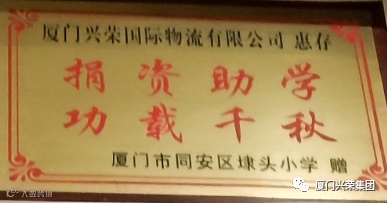 厦门兴荣国际物流有限公司 惠存
捐资助学
功载千秋
厦门市同安区埭头小学 赠
厦门兴荣集团